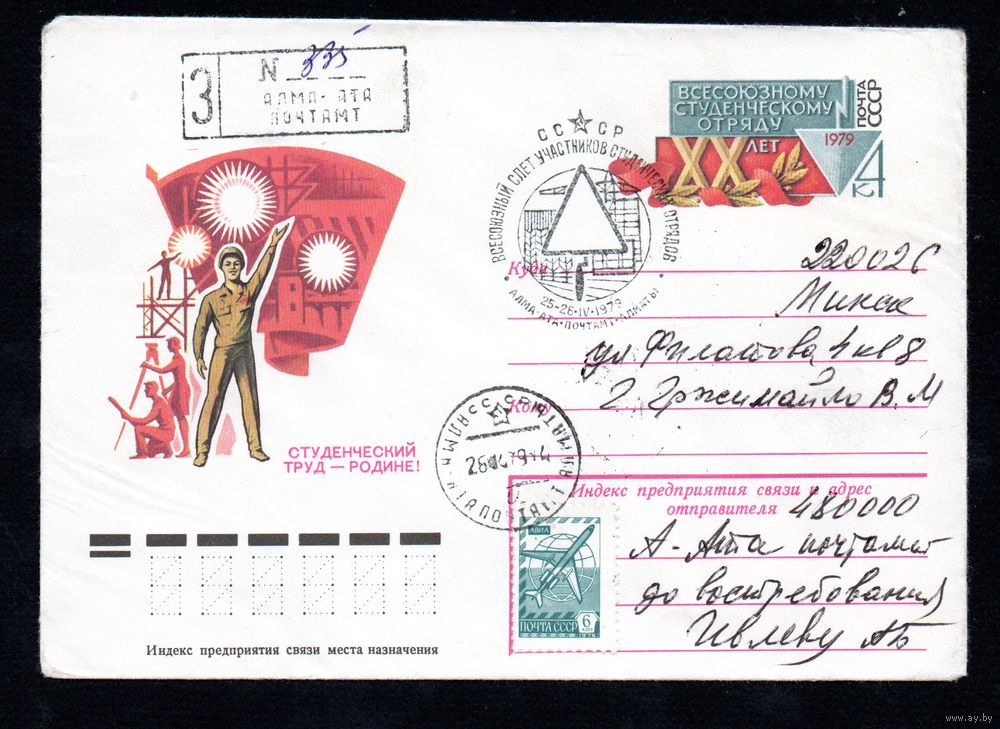 З
N 335
АЛМА-АТА
ПОЧТАМТ
ВСЕСОЮЗНОМУ
СТУДЕНЧЕСКОМУ
ОТРЯДУ
XX ЛЕТ
1979
ПОЧТА
СССР
4 К
СССР
ВСЕСОЮЗНЫЙ СЛЕТ УЧАСТНИКОВ СТУДЕНЧЕСКИХ ОТРЯДОВ
25-26•IV•1979
АЛМА-АТА•ПОЧТАМТ•АЛМАТЫ
Куда
220026
Минск
ул Филатова 4 кв 8
Кому
Г. Гржимайло В. М
СТУДЕНЧЕСКИЙ
ТРУД — РОДИНЕ!
Индекс предприятия связи и адрес
отправителя 480000
А-Ата почтамт
до востребования
Ивлеву АБ
АВИА
ПОЧТА СССР
6
1976
Индекс предприятия связи места назначения
www.ay.by